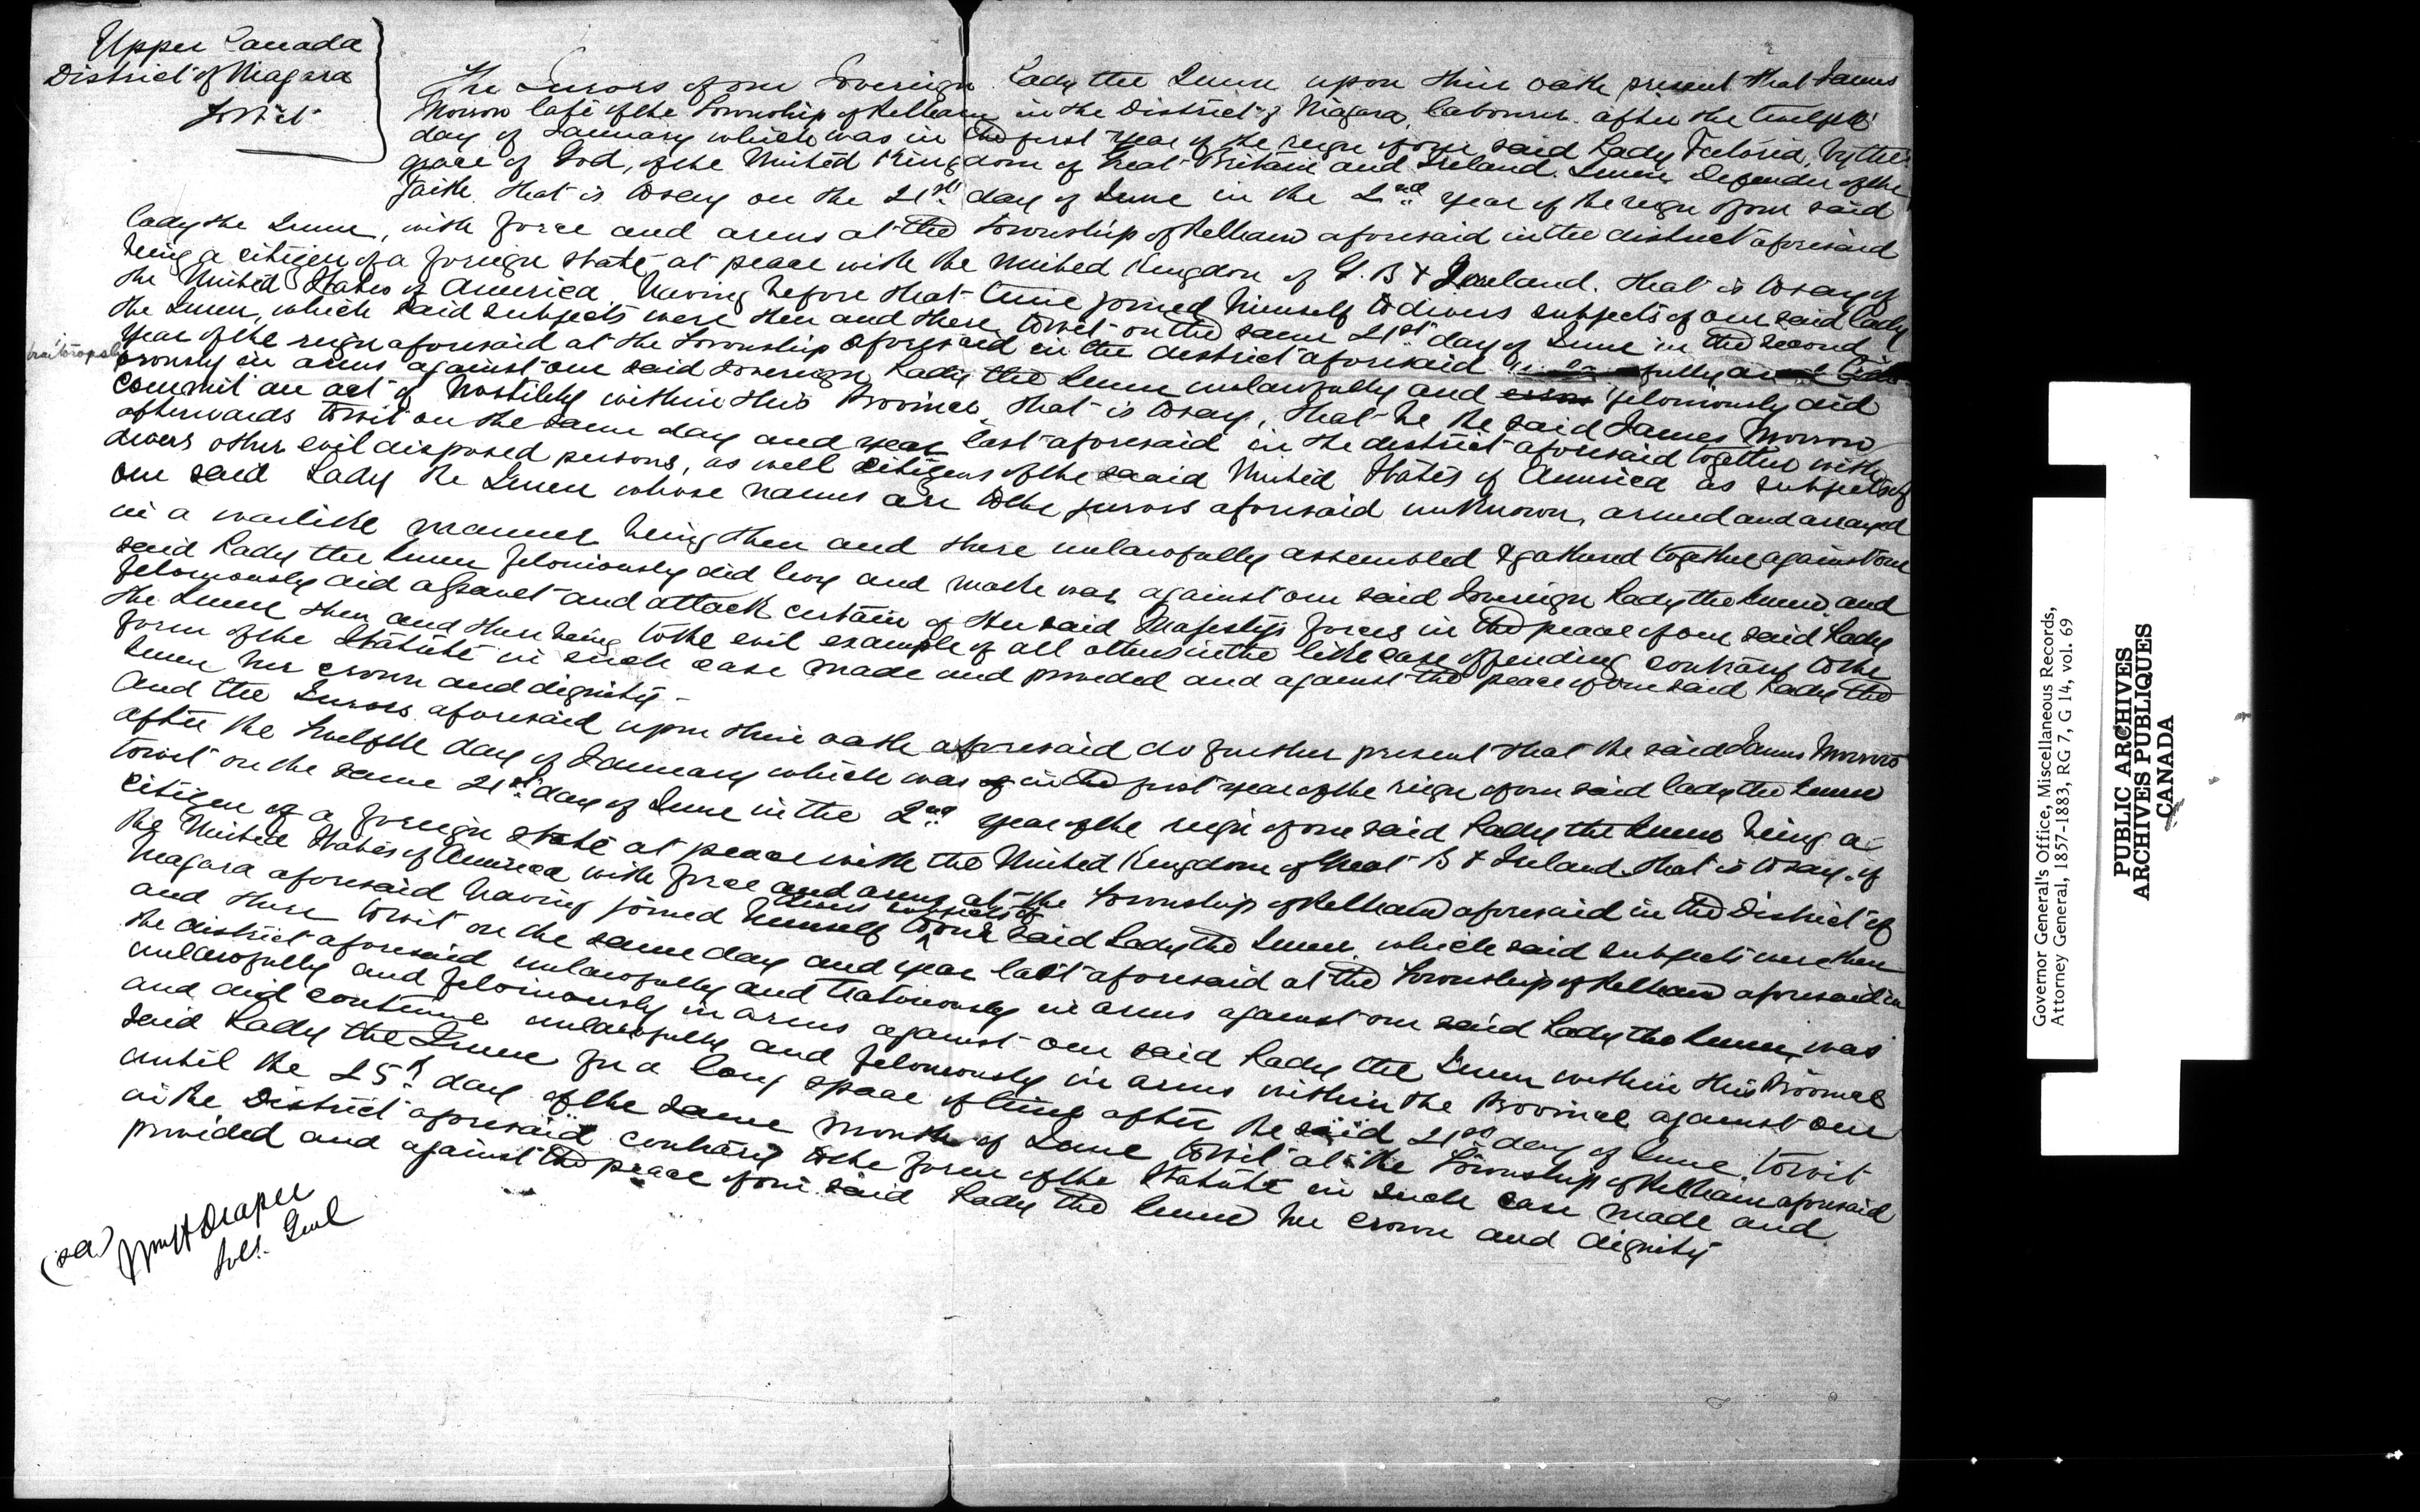 Upper Canada
District of Niagara
to wit
The Jurors of our Sovereign Lady the Queen upon their oath present that James
Morrow late of the Township of Pelham in the District of Niagara, labourer. after the twelfth
day of January which was in the first year of the reign of our said Lady Victoria, by the
grace of God, of the United Kingdom of Great Britain and Ireland Queen Defender of the
Faith. that is to say on the 21st day of June in the 2nd year of the reign of our said
lady the Queen, with force and arms at the Township of Pelham aforesaid in the district aforesaid
being a citizen of a foreign state at peace with the United Kingdom of G. B & Ireland. that is to say of
the United States of America. having before that time joined himself to divers subjects of our said lady
the Queen, which said subjects were then and there to wit on the same 21st day of June in the second
year of the reign aforesaid at the Township aforesaid in the district aforesaid unlawfully and
traitorously
orously in arms against our said Sovereign Lady the Queen unlawfully and feloniously did
commit an act of hostility within this Province, that is to say, that he the said James Morrow
afterwards to wit on the same day and year last aforesaid in the district aforesaid together with
divers other evil disposed persons, as well citizens of the said United States of America as subjects of
our said Lady the Queen whose names are to the jurors aforesaid unknown, armed and arrayed
in a warlike manner being then and there unlawfully assembled & gathered together against our
said Lady the Queen feloniously did levy and make war against our said Sovereign Lady the Queen, and
feloniously did assault and attack certain of Her said Majesty's forces in the peace of our said Lady
the Queen then and there being to the evil example of all others in the like case offending contrary to the
form of the Statute in such case made and provided and against the peace of our said Lady the
Queen her crown and dignity -
And the Jurors aforesaid upon their oath aforesaid do further present that the said James Morrow
after the twelfth day of January which was in the first year of the reign of our said lady the Queen
to wit on the same 21st day of June in the 2nd year of the reign of our said Lady the Queen being a
citizen of a foreign state at peace with the United Kingdom of Great B & Ireland. that is to say. of
the United States of America with force and arms at the Township of Pelham aforesaid in the District of
divers subjects of
Niagara aforesaid having joined himself to our said Lady the Queen, which said subjects were then
and there to wit on the same day and year last aforesaid at the Township of Pelham aforesaid in
the district aforesaid unlawfully and traitorously in arms against our said Lady the Queen, was
unlawfully and feloniously in arms against our said Lady the Queen within this Province
and did continue unlawfully and feloniously in arms within the Province against our
said Lady the Queen for a long space of time after the said 21st day of June, to wit
until the 25th day of the same month of June to wit at the Township of Pelham aforesaid
in the District aforesaid contrary to the form of the Statute in such case made and
provided and against the peace of our said Lady the Queen her crown and dignity
(sd) Wm H Draper
Sol. Genl
Governor General's Office, Miscellaneous Records,
Attorney General, 1857-1883, RG 7, G 14, vol. 69
PUBLIC ARCHIVES
ARCHIVES PUBLIQUES
CANADA